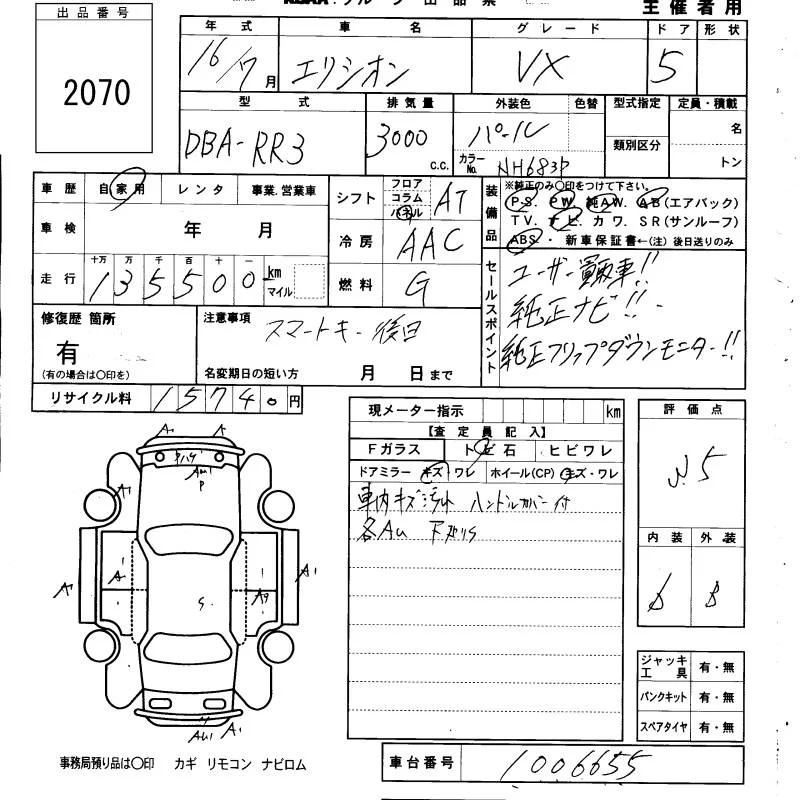 グループ 出品票
主催者用
出品番号
2070
年式 車名 グレード ドア 形状
16/7月 エリシオン VX 5
型式 排気量 外装色 色替 型式指定 定員・積載
DBA-RR3 3000 c.c. パール
カラーNo. NH683P
類別区分
名
トン
車歴 自家用 レンタ 事業.営業車
シフト フロア コラム パネル AT
装備品
※純正のみ〇印をつけて下さい。
P.S. PW. 純AW. AB(エアバック)
TV. ナビ. カワ. SR(サンルーフ)
ABS.・新車保証書←(注)後日送りのみ
車検 年 月
冷房 AAC
走行 十万 万 千 百 十 一
135500 km マイル
燃料 G
セールスポイント
ユーザー買取車!!
純正ナビ!!
純正フリップダウンモニター!!
修復歴 箇所
有
(有の場合は〇印を)
注意事項 スマートキー後日
名変期日の短い方 月 日まで
リサイクル料 15740円
現メーター指示 km
【査定員記入】
Fガラス トビ石 ヒビワレ
ドアミラー キズ・ワレ ホイール(CP) キズ・ワレ
車内キズ汚レ ハンドルカバー付
各AU 下廻りS
評価点
内装 外装
B B
A1 A
AU1
P
A1
A1 A1 A1
S
AU1 A1
ジャッキ工具 有・無
パンクキット 有・無
スペアタイヤ 有・無
事務局預り品は〇印 カギ リモコン ナビロム
車台番号 1006655